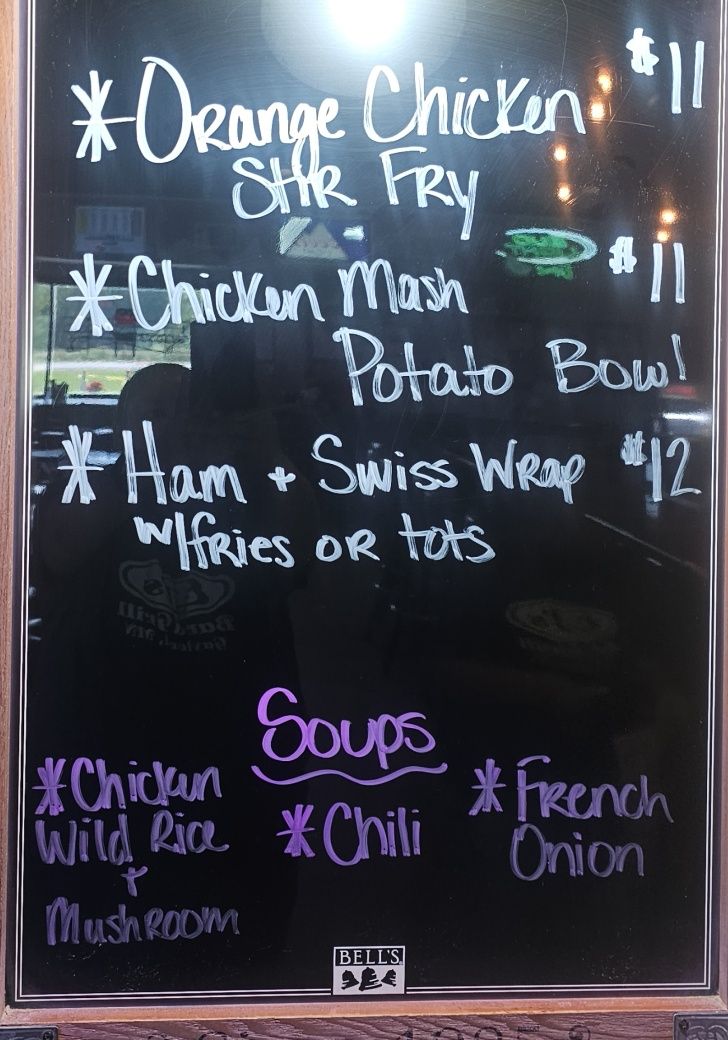 *Orange Chicken $11
Stir Fry
*Chicken Mash $11
Potato Bowl
*Ham + Swiss Wrap $12
w/fries or tots
Soups
*Chicken
Wild Rice
+
Mushroom
*Chili
*French
Onion
BELL'S